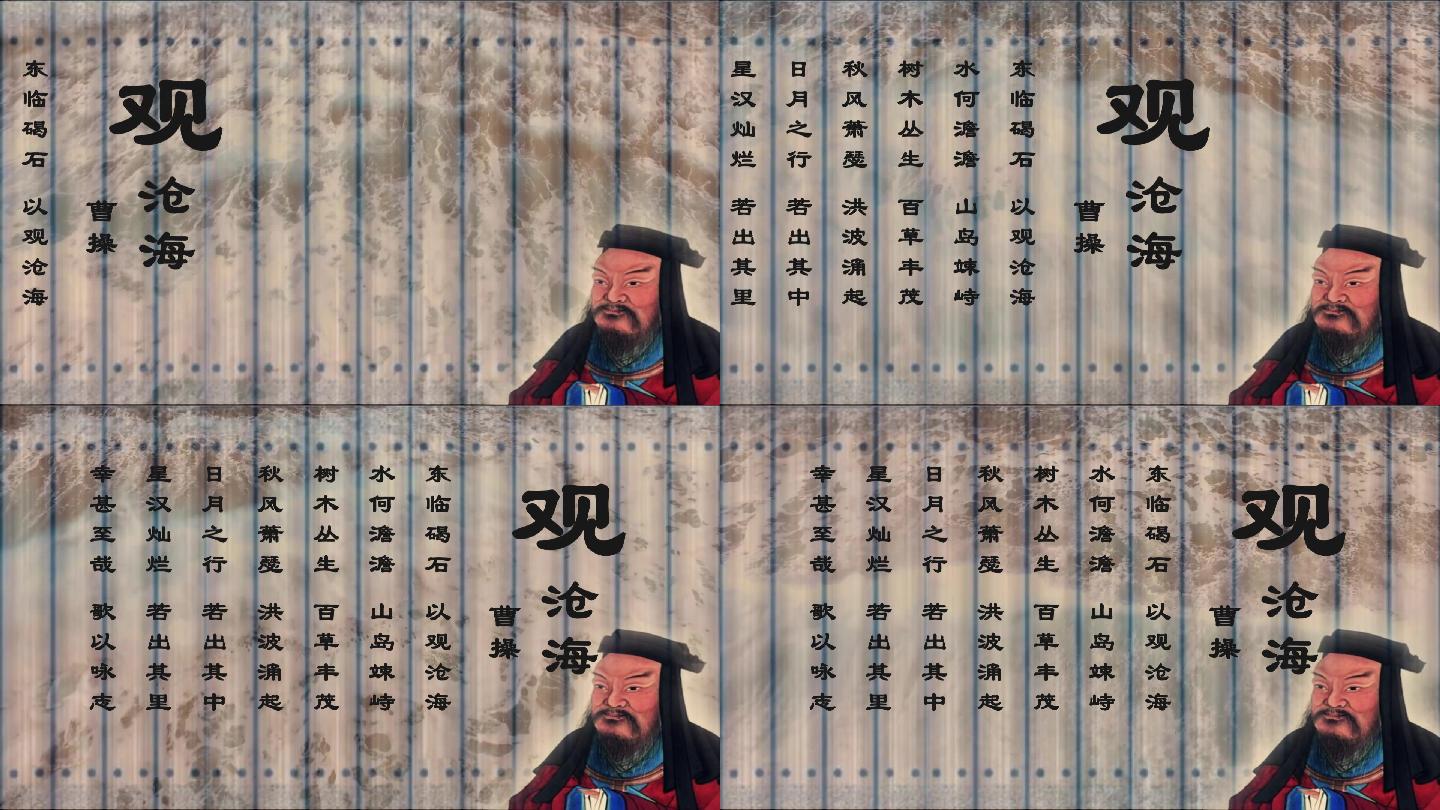 观沧海
曹操
东临碣石 以观沧海
观沧海
曹操
东临碣石 以观沧海
水何澹澹 山岛竦峙
树木丛生 百草丰茂
秋风萧瑟 洪波涌起
日月之行 若出其中
星汉灿烂 若出其里
观沧海
曹操
东临碣石 以观沧海
水何澹澹 山岛竦峙
树木丛生 百草丰茂
秋风萧瑟 洪波涌起
日月之行 若出其中
星汉灿烂 若出其里
幸甚至哉 歌以咏志
观沧海
曹操
东临碣石 以观沧海
水何澹澹 山岛竦峙
树木丛生 百草丰茂
秋风萧瑟 洪波涌起
日月之行 若出其中
星汉灿烂 若出其里
幸甚至哉 歌以咏志